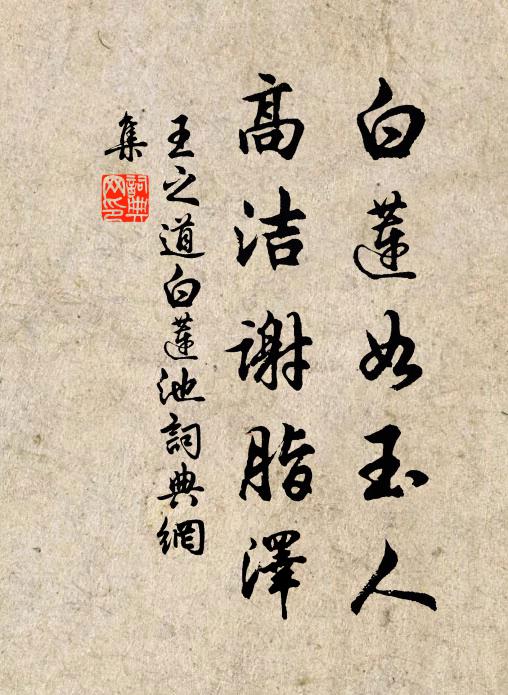 白蓮如玉人
高洁謝脂澤
王之道白蓮池詞典網
集
詞典网印